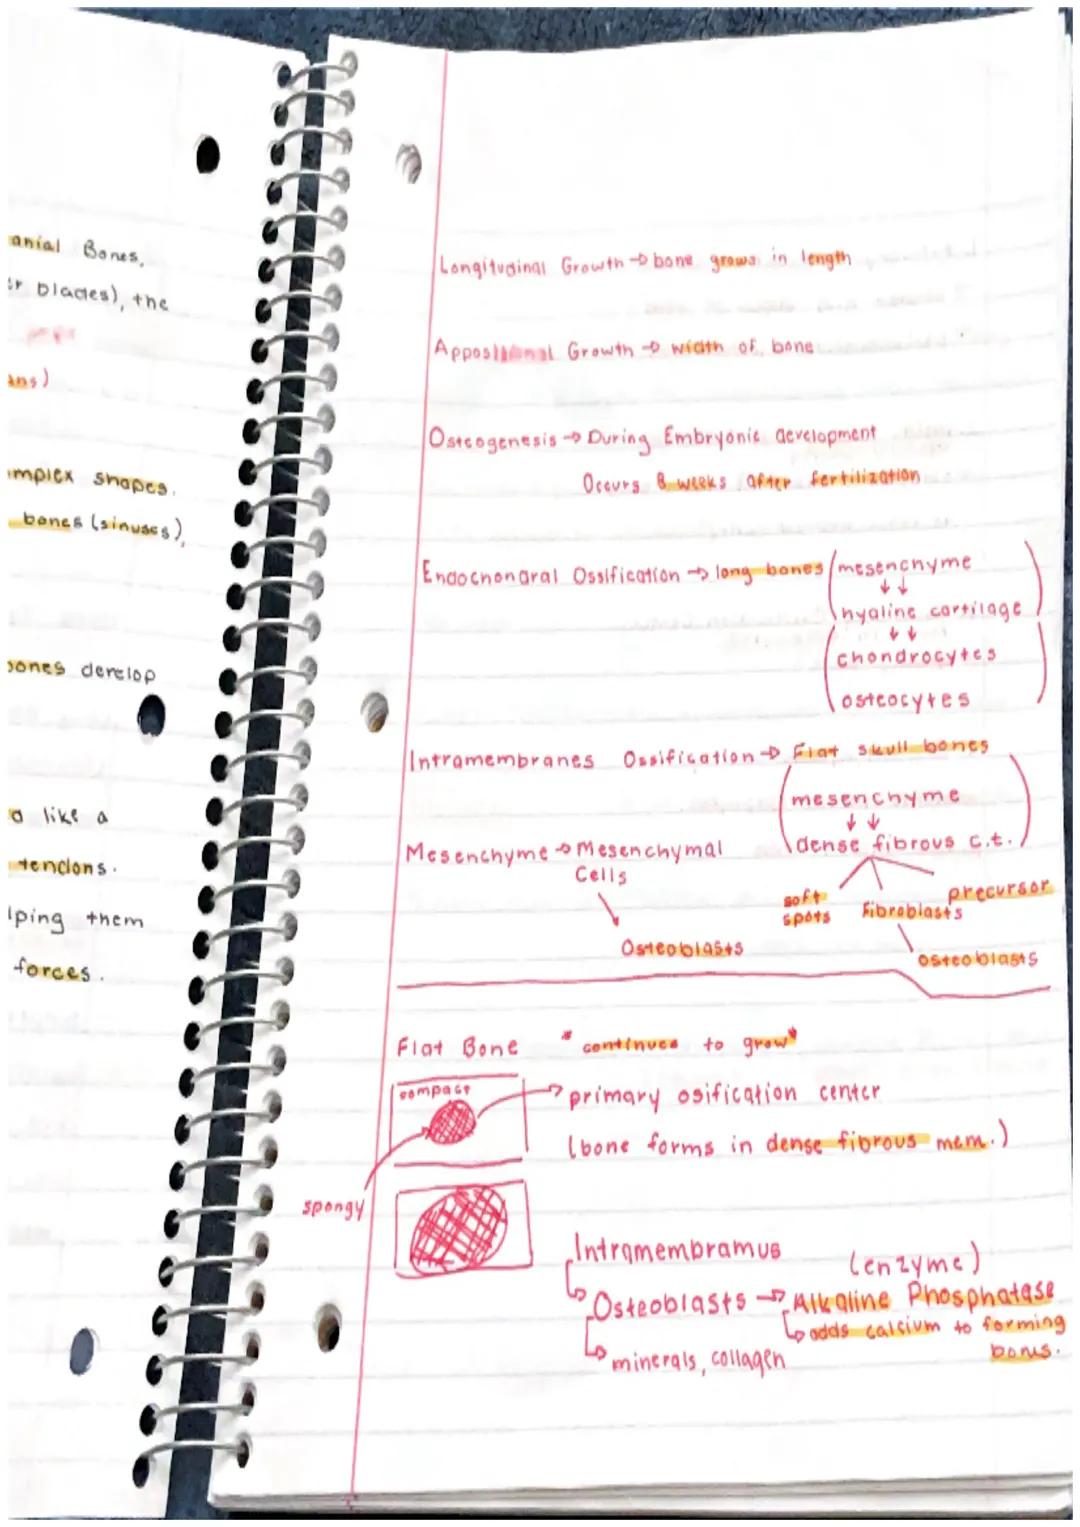 anial Bones,
er blades), the
ans)
omplex shapes.
bones (sinuses),
bones develop
d like a
tendons.
lping them
forces.
Longitudinal Growth → bone grows in length
Appositional Growth → width of bone
Osteogenesis → During Embryonic development
Occurs 8 weeks after fertilization
Endochondral Ossification → long bones (mesenchyme
↓ ↓
hyaline cartilage)
↓ ↓
(chondrocytes
osteocytes)
Intramembranes Ossification → Flat skull bones
(mesenchyme
↓ ↓
dense fibrous c.t.)
Mesenchyme → Mesenchymal
Cells
Osteoblasts
soft
spots
Fibroblasts
precursor
osteoblasts
Flat Bone *continues to grow*
compact
primary osification center
(bone forms in dense fibrous mem.)
spongy
Intramembramus
(enzyme)
Osteoblasts → Alkaline Phosphatase
adds calcium to forming
bones.
minerals, collagen